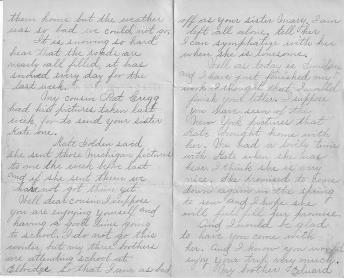 them home but the weather
was so bad we could not go.
It is snowing so hard
here that the roads are
nearly all filled, it has
snowed every day for the
last week.
My cousin Pat Gregg
had his pictures taken last
week, for to send your sister
Kate one.
Kate Golden said
she sent those Mechanic pictures
to me the week before last
and if she sent them we
have not got them yet.
Well dear cousin I suppose
you are enjoying yourself and
having a good time going
to school. I do not go this
winter, but my three brothers
are attending school at
Elbridge. So that I am as bad
off as your sister Mary, I am
left all alone, tell her
I can sympathize with her
when she is lonesome.
Well as today is Sunday
and I have just finished my
work I thought that I would
finish your letter. I suppose
you have seen the
New York pictures that
Kate brought home with
her. We had a lovely time
with Kate when she was
here, I think she is very
nice, she promised to come
down again in the spring
to see and I hope she
will fulfill her promise.
And I would be glad
to have you come with
her. And I know you would
enjoy your trip very much.
My brother Edward